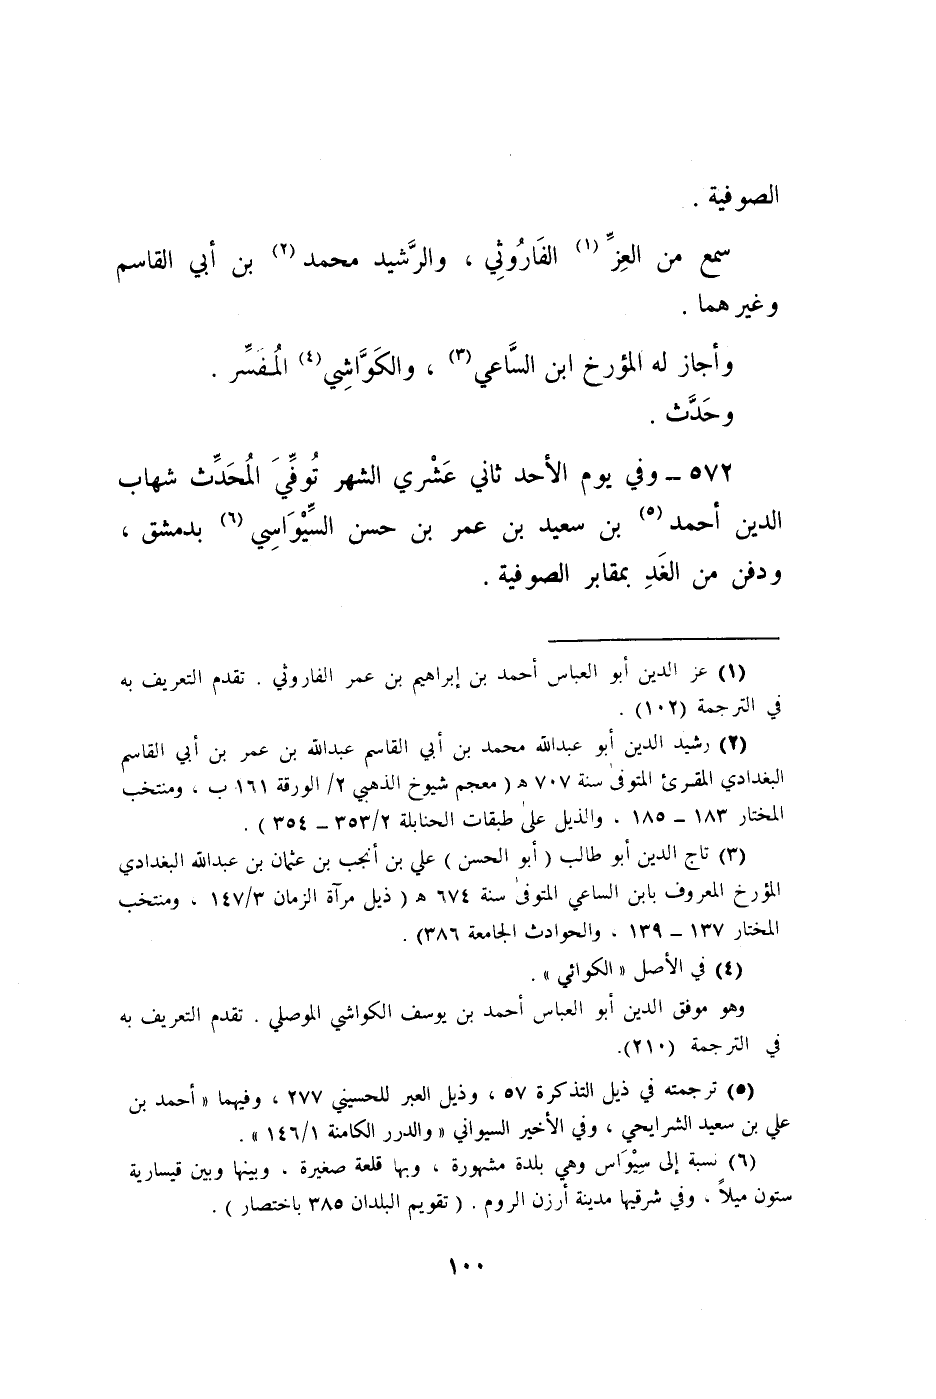 الصوفية .
سمع من العِزِّ (١) الفَارُوثِي ، والرَّشيد محمد (٢) بن أبي القاسم
وغيرهما .
وأجاز له المؤرخ ابن السَّاعي (٣) ، والكَوَّاشِي (٤) المُفَسِّر .
وحَدَّث .
٥٧٢ ــ وفي يوم الأحد ثاني عَشْري الشهر تُوفِّيَ المُحَدِّث شهاب
الدين أحمد (٥) بن سعيد بن عمر بن حسن السِّيْوَاسِي (٦) بدمشق ،
ودفن من الغَدِ بمقابر الصوفية .
(١) عز الدين أبو العباس أحمد بن إبراهيم بن عمر الفاروثي . تقدم التعريف به
في الترجمة (١٠٢) .
(٢) رشيد الدين أبو عبدالله محمد بن أبي القاسم عبدالله بن عمر بن أبي القاسم
البغدادي المقرئ المتوفىٰ سنة ٧٠٧ هـ ( معجم شيوخ الذهبي ٢/ الورقة ١٦١ ب ، ومنتخب
المختار ١٨٣ ــ ١٨٥ . والذيل علىٰ طبقات الحنابلة ٣٥٣/٢ ــ ٣٥٤ ) .
(٣) تاج الدين أبو طالب ( أبو الحسن ) علي بن أنجب بن عثمان بن عبدالله البغدادي
المؤرخ المعروف بابن الساعي المتوفىٰ سنة ٦٧٤ هـ ( ذيل مرآة الزمان ١٤٧/٣ ، ومنتخب
المختار ١٣٧ ــ ١٣٩ . والحوادث الجامعة ٣٨٦) .
(٤) في الأصل « الكوائي » .
وهو موفق الدين أبو العباس أحمد بن يوسف الكواشي الموصلي . تقدم التعريف به
في الترجمة (٢١٠).
(٥) ترجمته في ذيل التذكرة ٥٧ ، وذيل العبر للحسيني ٢٧٧ ، وفيهما « أحمد بن
علي بن سعيد الشرايحي ، وفي الأخير السيواني « والدرر الكامنة ١٤٦/١ » .
(٦) نسبة إلى سِيْوَاس وهي بلدة مشهورة ، وبها قلعة صغيرة . وبينها وبين قيسارية
ستون ميلاً . وفي شرقيها مدينة أرزن الروم . ( تقويم البلدان ٣٨٥ باختصار ) .
١٠٠